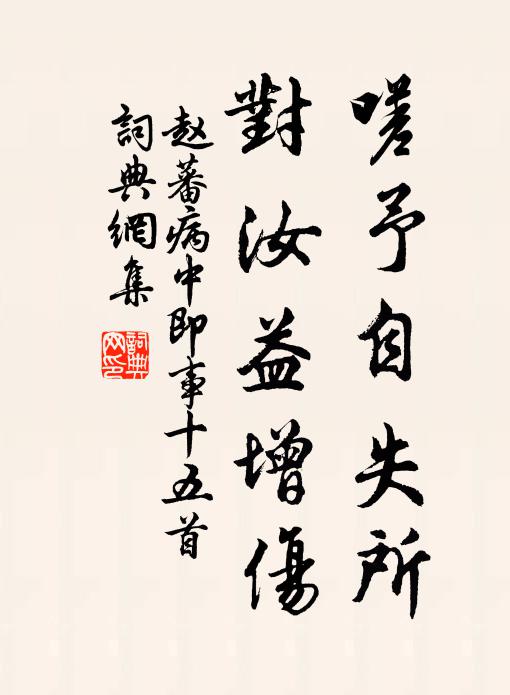 嗟予自失所
對汝益增傷
赵蕃病中即事十五首
詞典網集
詞典
网印